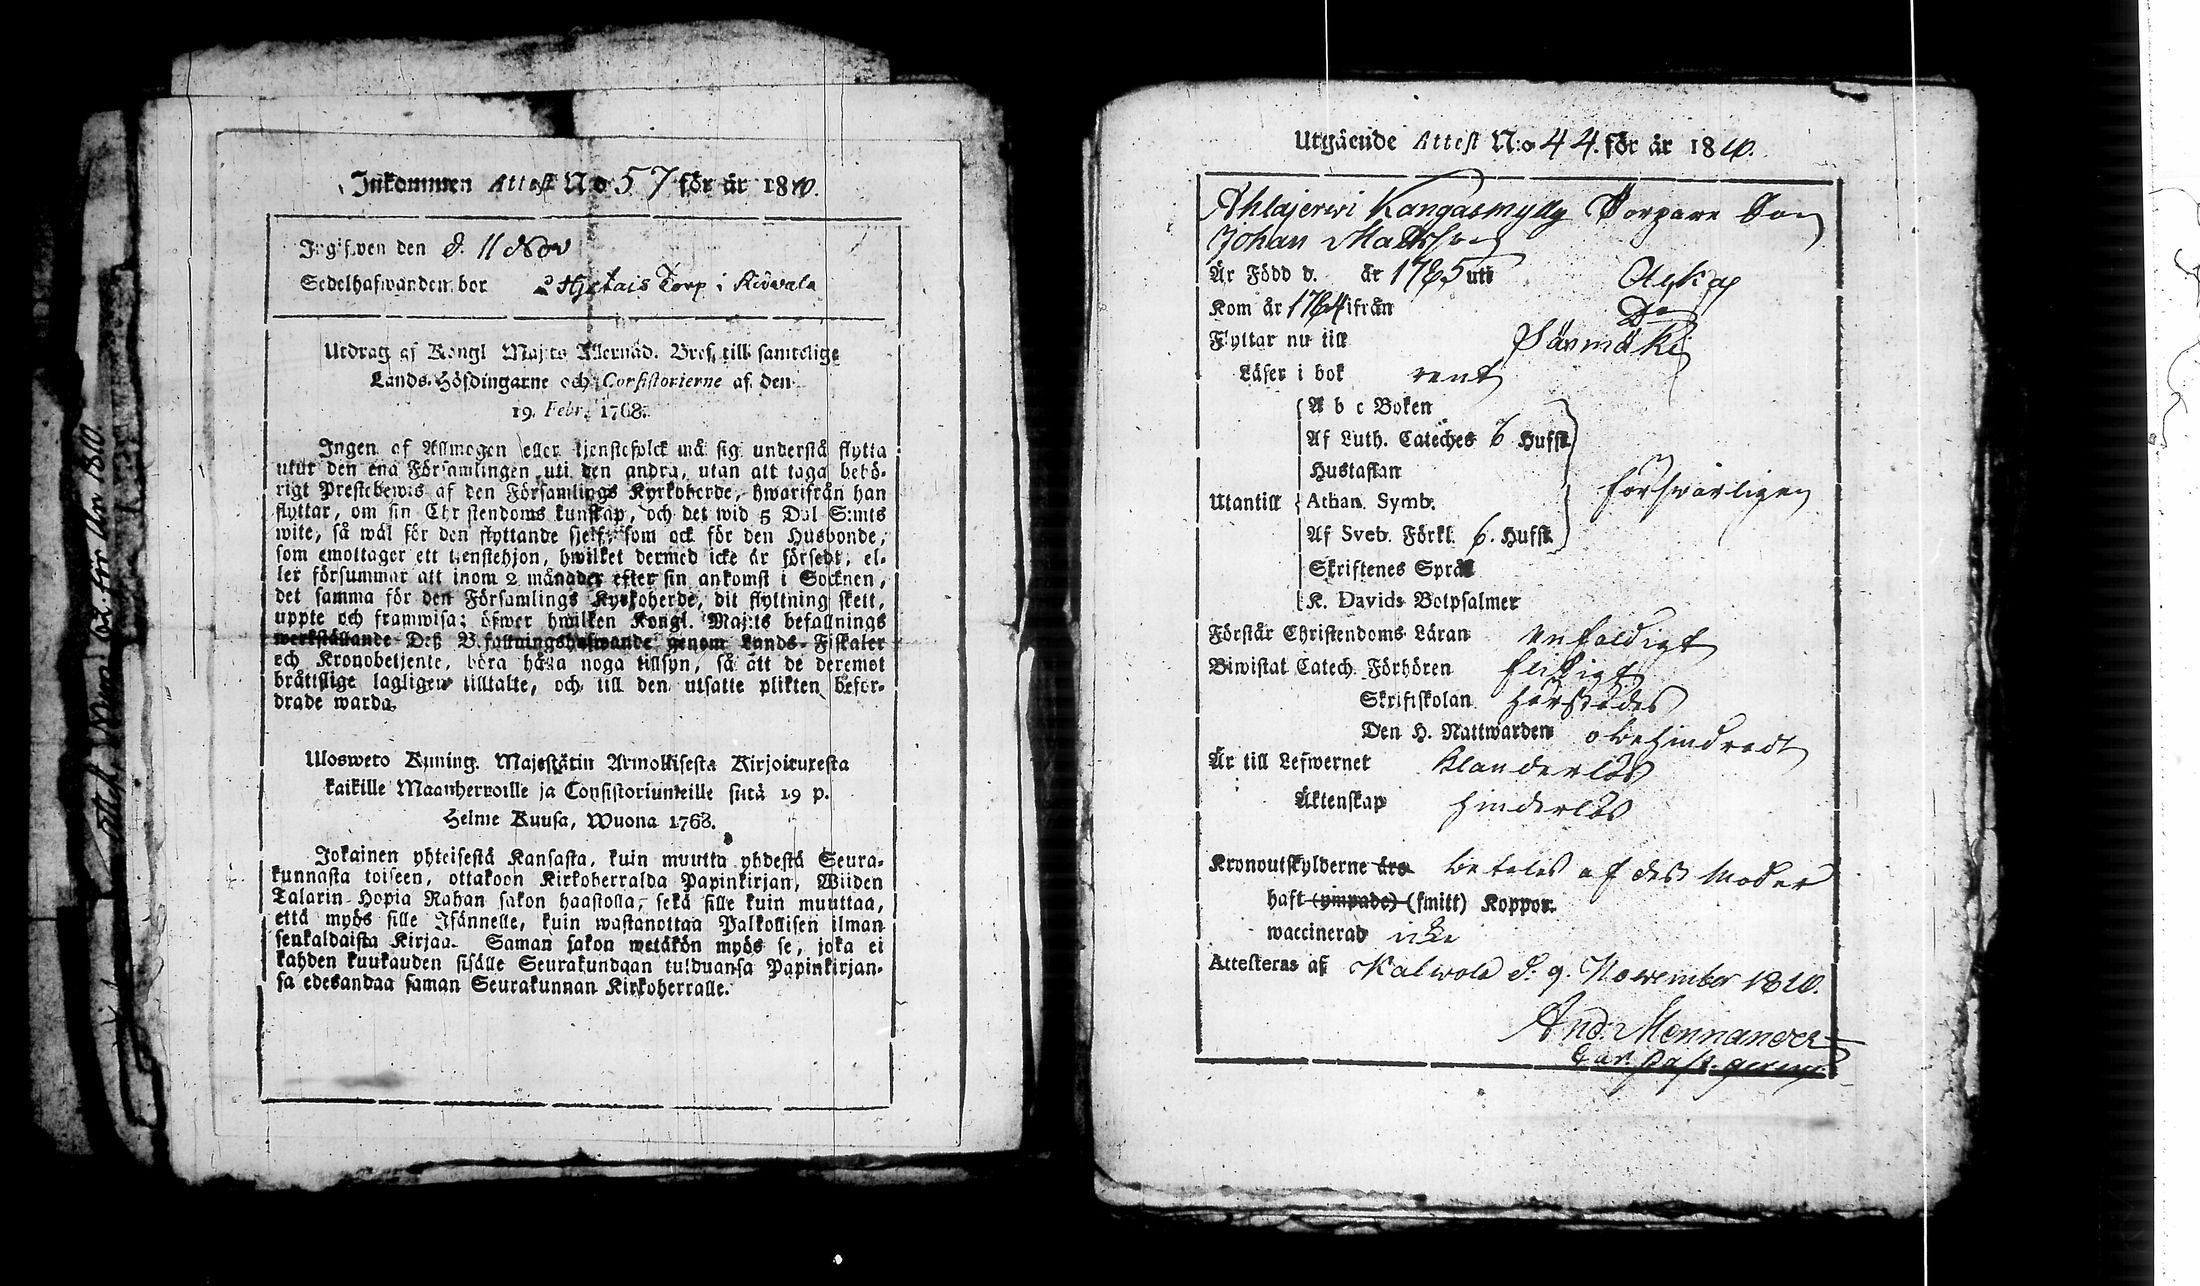 Inkommen Attest N:o 57 för år 1810.
Ingifwen den d. 11 Nov
Sedelhafwanden bor Torp i
Utdrag af Kongl Maj:ts Allernåd. Bref till samtelige
Lands-Höfdingarne och Consistorierne af den
19. Febr. 1768.
Ingen af Allmogen eller tjenstefolck må sig understå flytta
utur den ena Församlingen uti den andra, utan att taga behö-
rigt Prestebewis af den Församlings Kyrkoherde, hwarifrån han
flyttar, om sin Christendoms kunskap, och det wid 5 Dal S:mts
wite, så wäl för den flyttande sjelf, som ock för den Husbonde,
som emottager ett tjenstehjon, hwilket dermed icke är försedt, el-
ler försummar att inom 2 månader efter sin ankomst i Socknen,
det samma för den Församlings Kyrkoherde, dit flyttning skett,
uppte och framwisa; öfwer hwilken Kongl. Maj:ts befallnings
werkställande Deß Befallningshafwande genom Lands-Fiskaler
och Kronobetjente, böra hålla noga tillsyn, så att de deremot
bråttslige lagligen tilltalte, och till den utsatte plikten befor-
drade warda.
Ulosweto Kuning. Majestätin Armollisesta Kirjoituxesta
kaikille Maanherroille ja Consistoriumeille siitä 19 p.
Helme Kuusa, Wuona 1768.
Jokainen yhteisestä Kansasta, kuin muutta yhdestä Seura-
kunnasta toiseen, ottakoon Kirkoherralda Papinkirjan, Wiiden
Talarin Hopia Rahan sakon haastolla, sekä sille kuin muuttaa,
että myös sille Isännelle, kuin wastanottaa Palkollisen ilman
senkaldaista Kirjaa. Saman sakon wetäkön myös se, joka ei
kahden kuukauden sisälle Seurakundaan tulduansa Papinkirjan-
sa edesandaa saman Seurakunnan Kirkoherralle.
Utgående Attest N:o 44. för år 1810.
Ahlajerwi Kangasmylly Torpare Son
Johan Matsson
Är Född d. år 1785 uti
Kom år 1784 ifrån
Flyttar nu till Säxmäki
Läser i bok rent
A b c Boken
Af Luth. Cateches 6 Hufst.
Hustaflan
Utantill Athan. Symb. förswarligen
Af Sveb. Förkl. 6. Hufst.
Skriftenes Språk
K. Davids Botpsalmer
Förstår Christendoms Läran enfaldigt
Biwistat Catech. Förhören flitigt
Skriftskolan härstädes
Den H. Nattwarden obehindradt
Är till Lefwernet klanderlös
Äktenskap hinderlös
Kronoutskylderne äro betales af dess Moder
haft (ympade) (smitt) Koppor.
waccinerad icke
Attesteras af Kalwola d. 9. November 1810.
And: Mennander